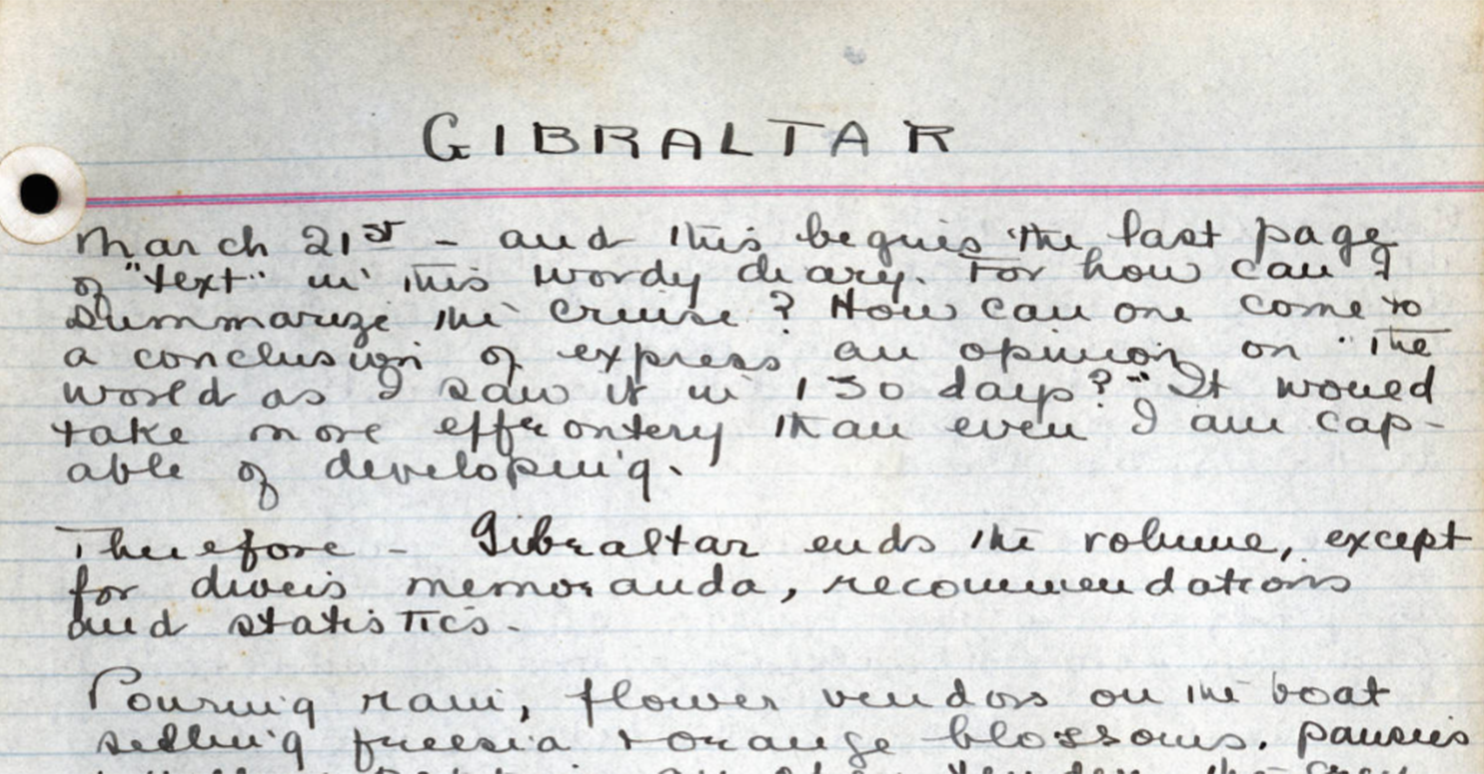 GIBRALTAR
March 21st - and this begins the last page
of "text" in this wordy diary. For how can I
summarize the cruise? How can one come to
a conclusion of express an opinion on "The
world as I saw it in 130 days?" It would
take more effrontery than even I am cap-
able of developing.
Therefore - Gibraltar ends the volume, except
for divers memoranda, recommendations
and statistics.
Pouring rain, flower vendors on the boat
selling freesia + orange blossoms, pansies